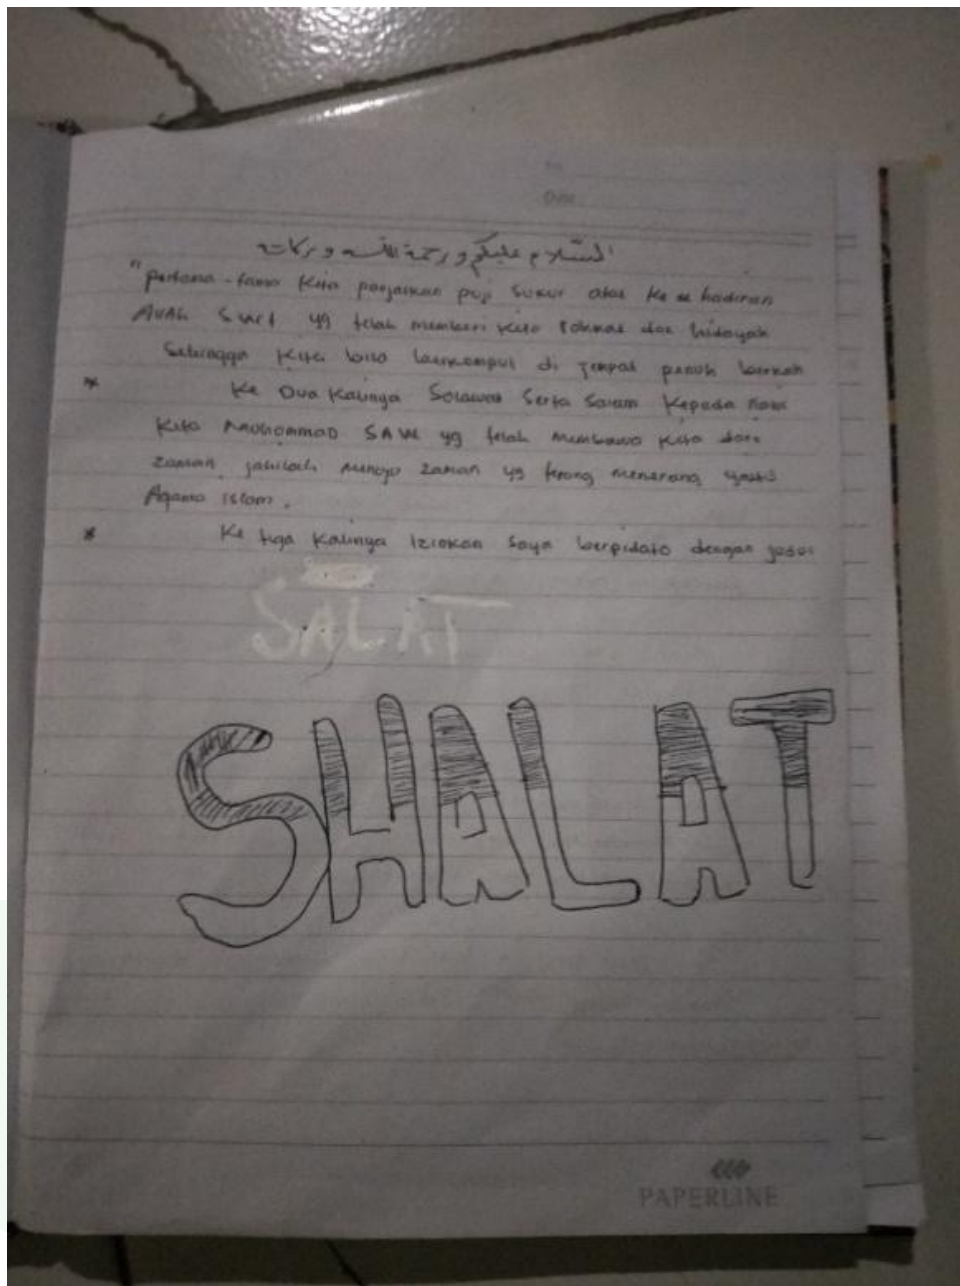 السلام عليكم ورحمة الله وبركات
"pertama-tama Kita panjatkan puji Sukur atas Ke se hadiran
Allah Swt yg telah memberi Kita rohmat dan hidayah
Sehingga Kita bisa berkumpul di tempat penuh berkah
* Ke Dua Kalinya Solawat Serta Salam Kepada Nabi
Kita Muhammad SAW yg telah membawa Kita dari
zaman jahilah menuju zaman yg terang menerang yaitu
Agama Islam.
* Ke tiga Kalinya Izinkan Saya berpidato dengan judul
SALAT
SHALAT
PAPERLINE